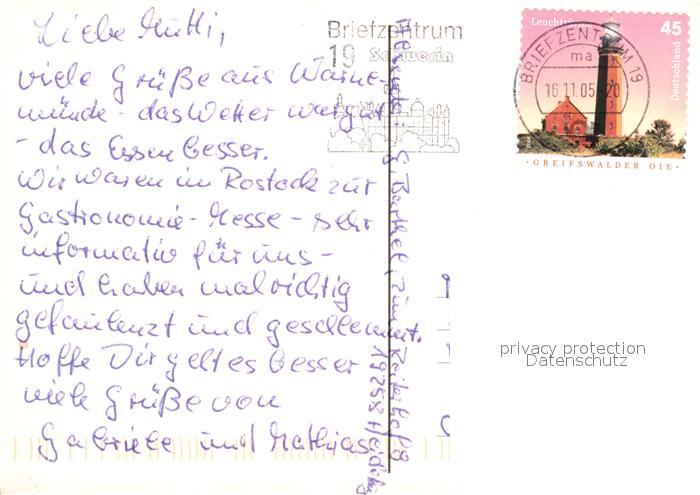 Liebe Mutti,
viele Grüße aus Warne-
münde - das Wetter war gut
- das Essen besser.
Wir waren in Rostock zur
Gastronomie-Messe - sehr
informativ für uns -
und haben mal richtig
gefaulenzt und geschlemmt.
Hoffe Dir geht es besser
viele Grüße von
Gabriele und Mathias
G. Barthel, Zum
19258
Briefzentrum
19 Schwerin
Leuchttürme
45
Deutschland
BRIEFZENTRUM 19
ma
16.11.05-20
·GREIFSWALDER OIE·
privacy protection
Datenschutz